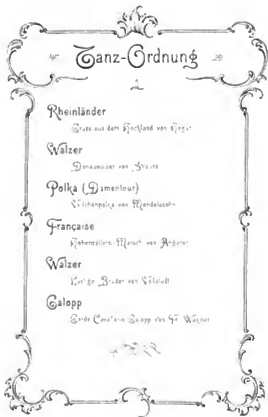 Tanz-Ordnung
Rheinländer
Gruss aus dem Hochland von
Walzer
Donauwalzer von Strauss
Polka (Damentour)
Veilchenpolka von Mendelssohn
Française
Hohenzollern-Marsch von
Walzer
Lust'ge Brüder von Vollstedt
Galopp
Garde Cavallerie Galopp von Fr. Wagner